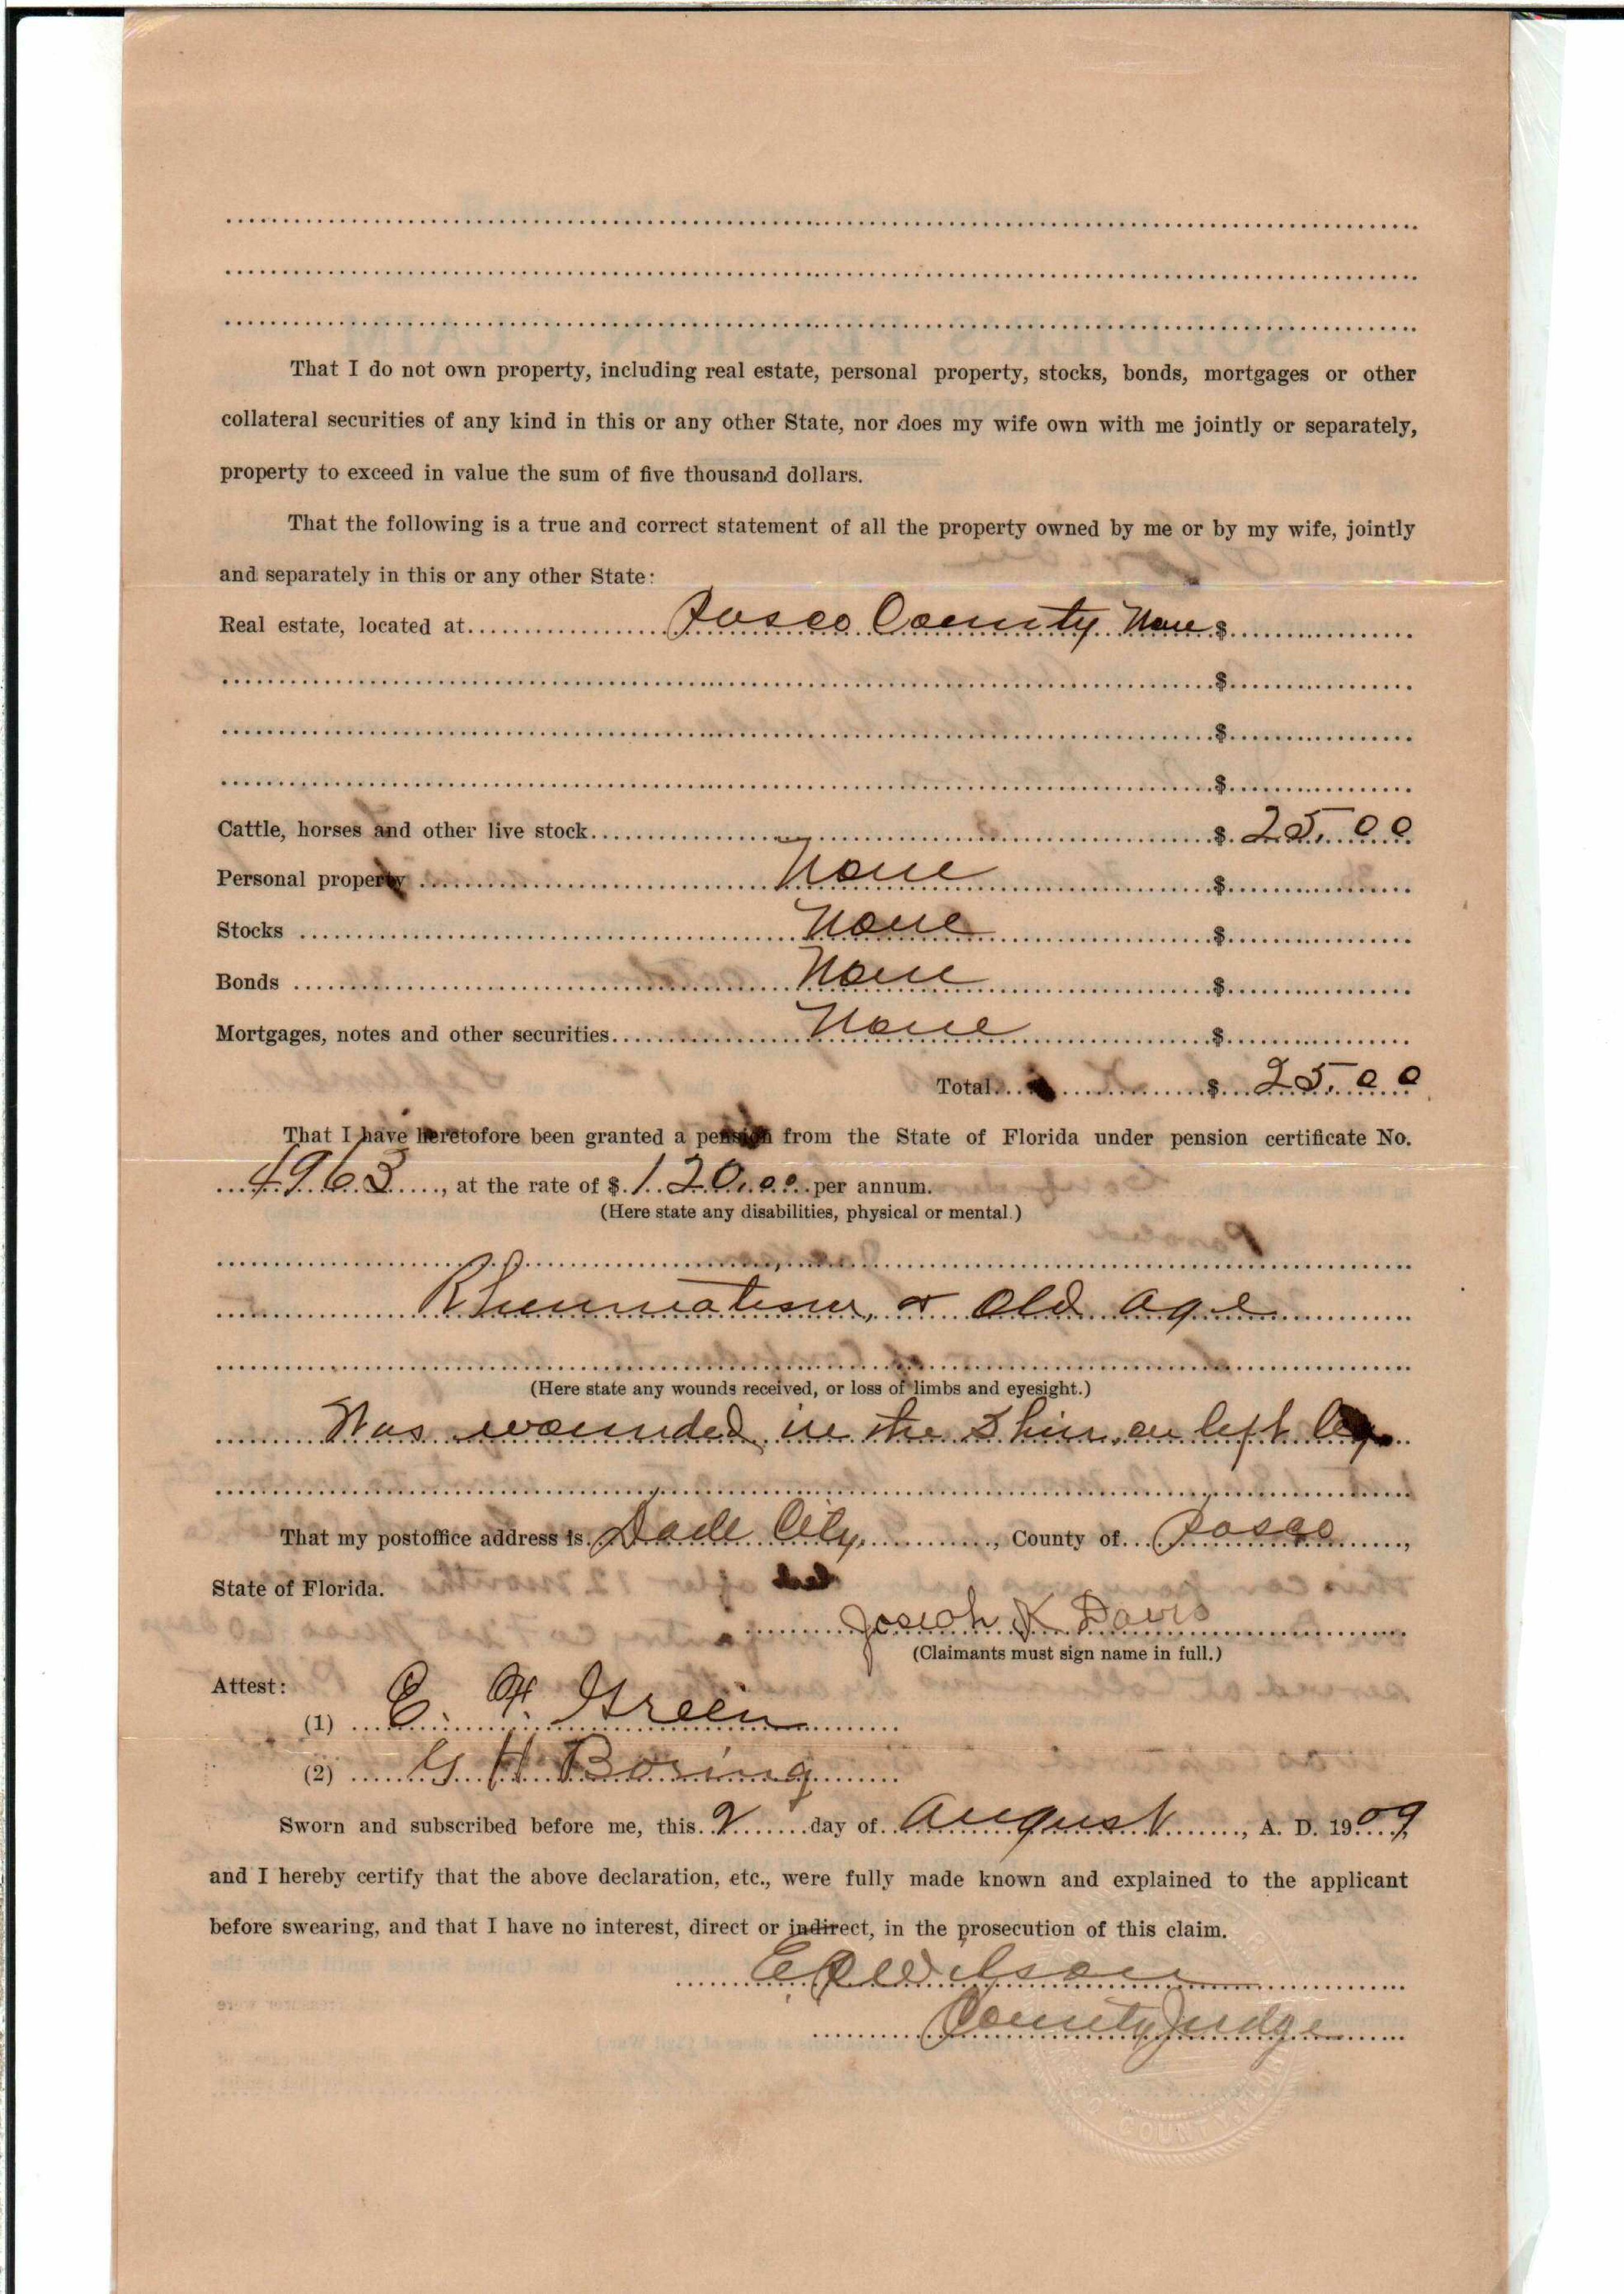 That I do not own property, including real estate, personal property, stocks, bonds, mortgages or other
collateral securities of any kind in this or any other State, nor does my wife own with me jointly or separately,
property to exceed in value the sum of five thousand dollars.
That the following is a true and correct statement of all the property owned by me or by my wife, jointly
and separately in this or any other State:
Real estate, located at Pasco County None $
$
$
$
Cattle, horses and other live stock $ 25.00
Personal property None $
Stocks None $
Bonds None $
Mortgages, notes and other securities None $
Total $ 25.00
That I have heretofore been granted a pension from the State of Florida under pension certificate No.
4963, at the rate of $ 120.00 per annum.
(Here state any disabilities, physical or mental.)
Rheumatism, & Old Age
(Here state any wounds received, or loss of limbs and eyesight.)
Was wounded in the Shin, on left leg.
That my postoffice address is Dade City, County of Pasco,
State of Florida.
Josiah K Davis
(Claimants must sign name in full.)
Attest:
(1) E. F. Green
(2) G H Boring
Sworn and subscribed before me, this 2 day of August, A. D. 1909,
and I hereby certify that the above declaration, etc., were fully made known and explained to the applicant
before swearing, and that I have no interest, direct or indirect, in the prosecution of this claim.
County Judge
COUNTY, FLO